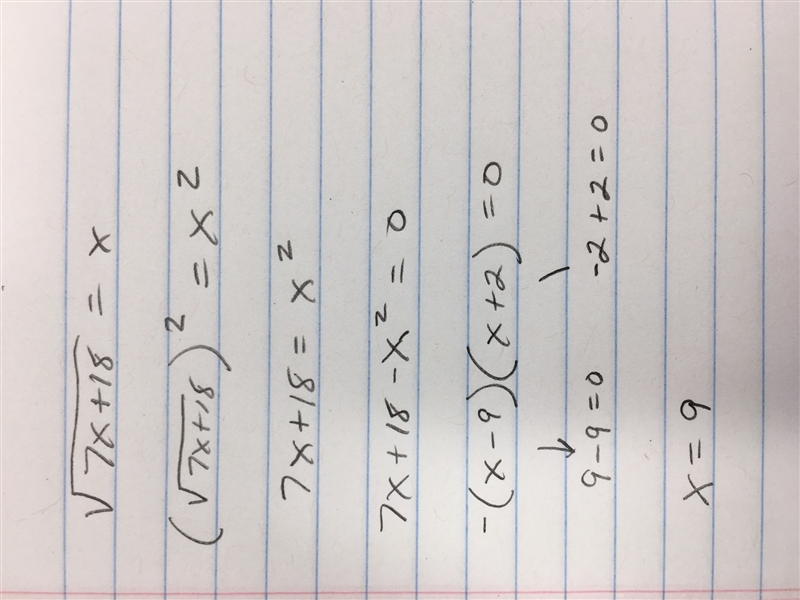 √7x+18 = x
(√7x+18)² = x²
7x+18 = x²
7x+18-x² = 0
-(x-9)(x+2) = 0
↓ \
9-9=0 -2+2=0
x=9